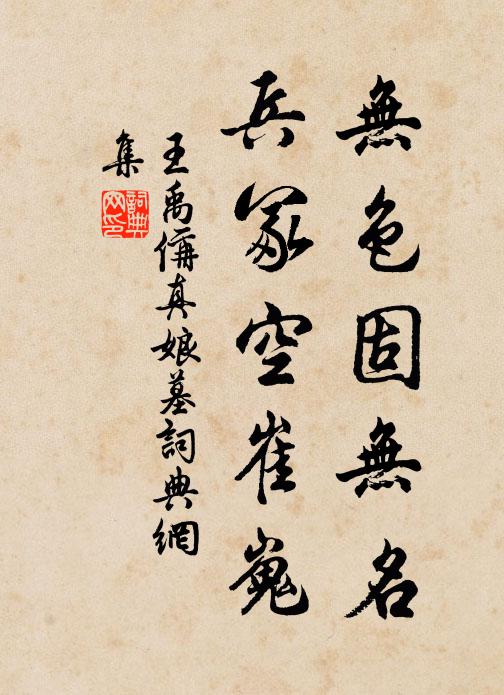 無色固無名
兵冢空崔嵬
王禹偁真娘墓詞典網
集
詞典
网印